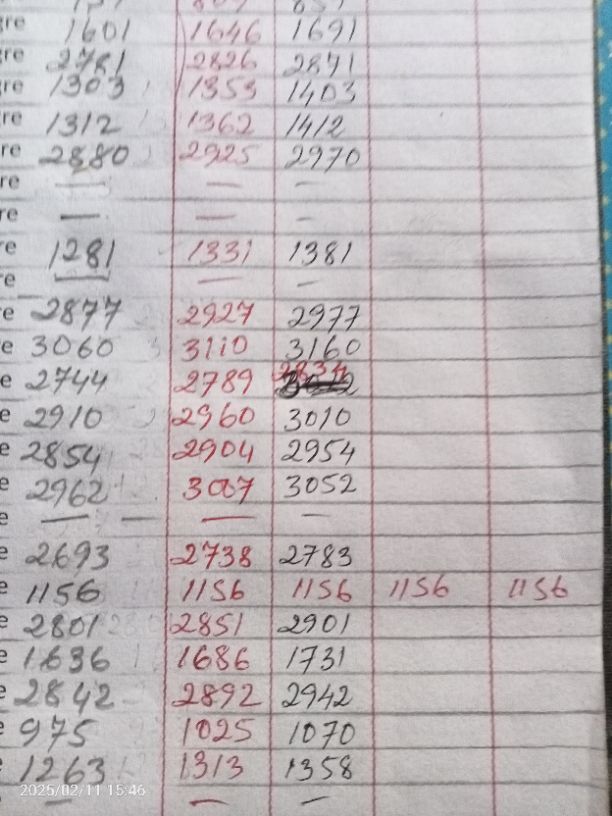 gre 1601 1646 1691
gre 2781 2826 2871
gre 1303 1353 1403
gre 1312 1362 1412
re 2880 2925 2970
re — — —
re — — —
re 1281 1331 1381
re — — —
re 2877 2927 2977
e 3060 3110 3160
e 2744 2789 2834
e 2910 2960 3010
e 2854 2904 2954
e 2962 3007 3052
e — — — —
e 2693 2738 2783
e 1156 1156 1156 1156 1156
e 2801 2851 2901
e 1636 1686 1731
e 2842 2892 2942
e 975 1025 1070
e 1263 1313 1358
— — —
2025/02/11 15:46